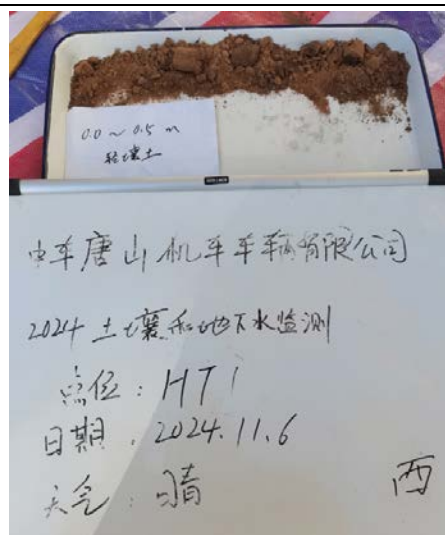 0.0~0.5 m
轻壤土
中车唐山机车车辆有限公司
2024 土壤和地下水监测
点位：HT1
日期：2024.11.6
天气：晴
西